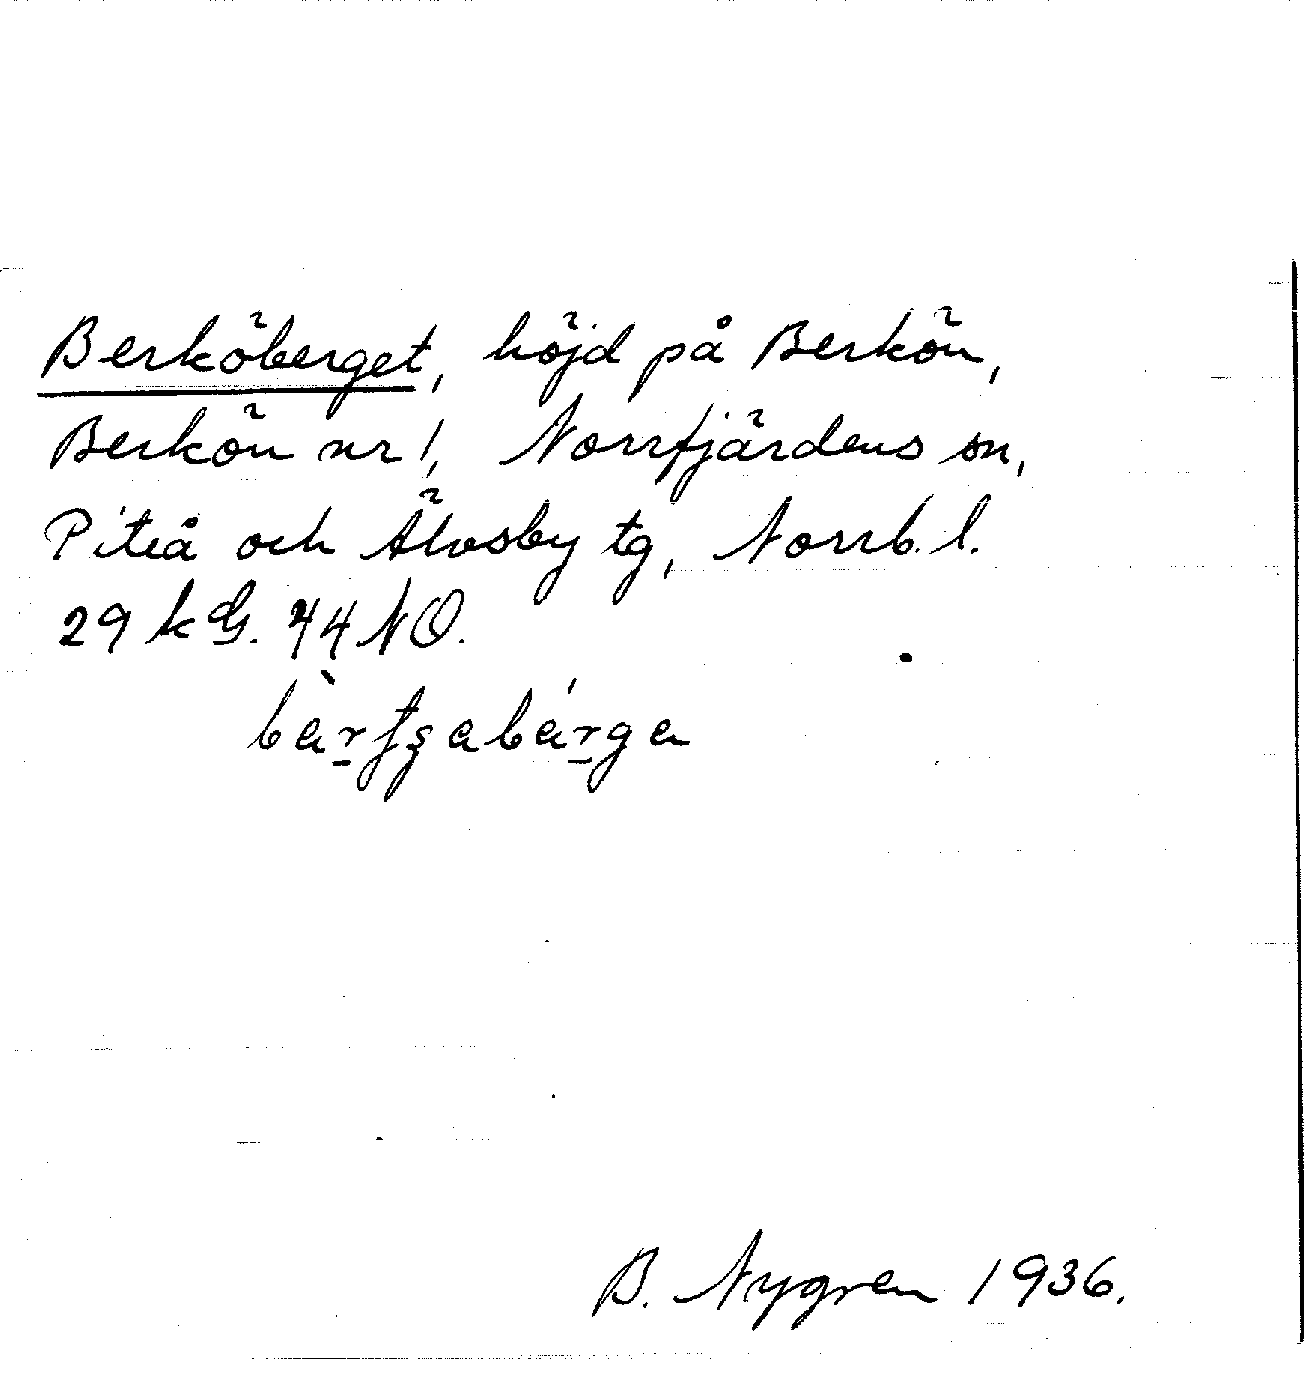 Berköberget, höjd på Berkön,
Berkön nr 1, Norrfjärdens sn,
Piteå och Älvsby tg, Norrb. l.
29 k G. 44 NO.
bàr̲fşabár̲ga
B. Nygren 1936.